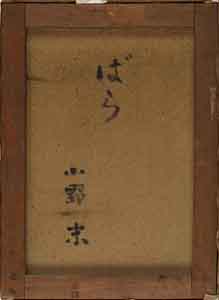 ばら
小野 末